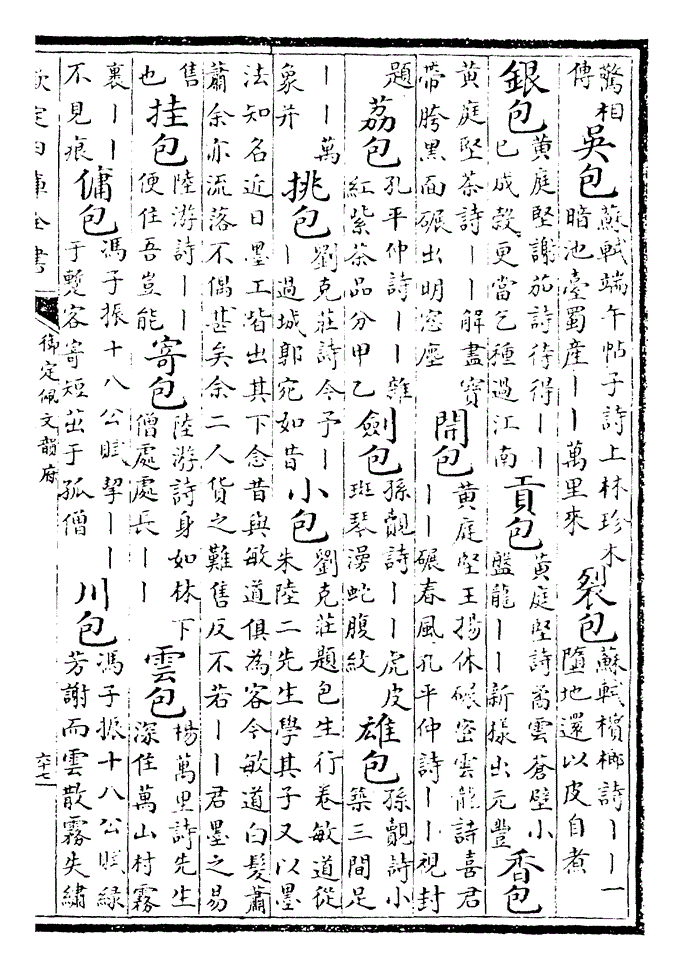 驚相
傳
吳包
蘇軾端午帖子詩上林珍木
暗池臺蜀產丨丨萬里來
裂包
蘇軾檳榔詩丨丨一
墮地還以皮自煮
銀包
黃庭堅謝茄詩待得丨丨
已成殼更當乞種過江南
貢包
黃庭堅詩矞雲蒼璧小
盤龍丨丨新樣出元豐
香包
黃庭堅茶詩丨丨解盡寶
帶胯黑面碾出明窓塵
開包
黃庭堅王揚休碾密雲龍詩喜君
丨丨碾春風孔平仲詩丨丨視封
題
荔包
孔平仲詩丨丨雜
紅紫茶品分甲乙
劍包
孫覿詩丨丨虎皮
斑琴漫蛇腹紋
雄包
孫覿詩小
築三間足
丨丨萬
象并
挑包
劉克莊詩今予丨
丨過城郭宛如昔
小包
劉克莊題包生行卷敏道從
朱陸二先生學其子又以墨
法知名近日墨工皆出其下念昔與敏道俱為客今敏道白髮蕭
蕭余亦流落不偶甚矣余二人貨之難售反不若丨丨君墨之易
售
也
挂包
陸游詩丨丨
便住吾豈能
寄包
陸游詩身如林下
僧處處長丨丨
雲包
楊萬里詩先生
深住萬山村霧
裹丨丨
不見痕
傭包
馮子振十八公賦挈丨丨
于蹔客寄短茁于孤僧
川包
馮子振十八公賦緑
芳謝而雲散霧失繡
欽定四庫全書
御定佩文韻府
六十七